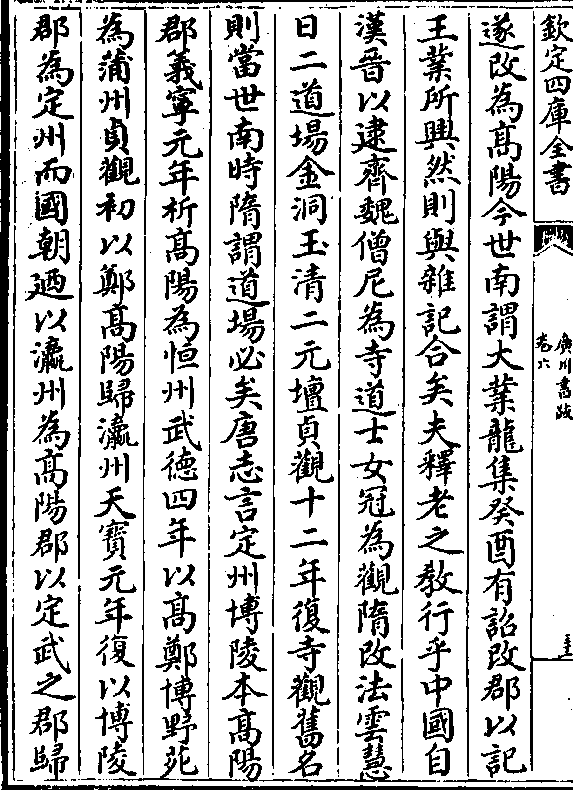 欽定四庫全書
廣川書跋
卷六
遂改為髙陽今世南謂大業龍集癸酉有詔改郡以記
王業所興然則與雜記合矣夫釋老之教行乎中國自
漢晉以逮齊魏僧尼為寺道士女冠為觀隋改法雲慧
日二道場金洞玉清二元壇貞觀十二年復寺觀舊名
則當世南時隋謂道場必矣唐志言定州博陵本髙陽
郡義寧元年析髙陽為恒州武德四年以髙鄭博野苑
為蒲州貞觀初以鄭髙陽歸瀛州天寳元年復以博陵
郡為定州而國朝廼以瀛州為髙陽郡以定武之郡歸